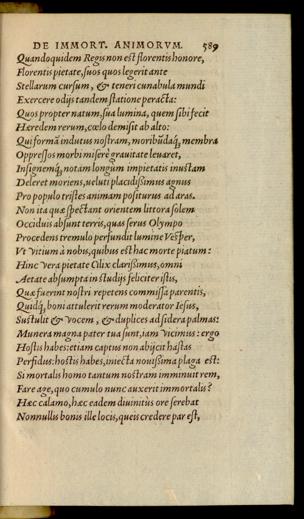 DE IMMORT. ANIMORVM. 589
Quandoquidem Regis non est florentis honore,
Florentis pietate, suos quos legerit ante
Stellarum cursum, & teneri cunabula mundi
Exercere odijs tandem statione peracta:
Quos propter natum, sua lumina, quem sibi fecit
Hæredem rerum, cœlo demisit ab alto:
Qui forma indutus nostram, moribūdaq́; membra
Oppressos morbi miserè grauitate leuaret,
Insignemq́; notam longum impietatis inustam
Deleret moriens, ueluti placidissimus agnus
Pro populo tristes animam positurus ad aras.
Non ita quæ spectant orientem littora solem
Occiduis absunt terris, quas serus Olympo
Procedens tremulo perfundit lumine Vesper,
Vt uitium à nobis, quibus est hac morte piatum:
Hinc uera pietate Cilix clarissimus, omni
Aetate absumpta in studijs feliciter istis,
Quæ fuerint nostri repetens commissa parentis,
Quidq́; boni attulerit rerum moderator Iesus,
Sustulit & uocem, & duplices ad sidera palmas:
Munera magna pater tua sunt, iam uicimus: ergo
Hostis habes: etiam captus non abijcit hastas
Perfidus: hostis habes, iniecta nouissima plaga est:
Si mortalis homo tantum nostram imminuit rem,
Fare age, quo cumulo nunc auxerit immortalis?
Hæc calamo, hæc eadem diuinitùs ore serebat
Nonnullis bonis ille locis, queis credere par est,